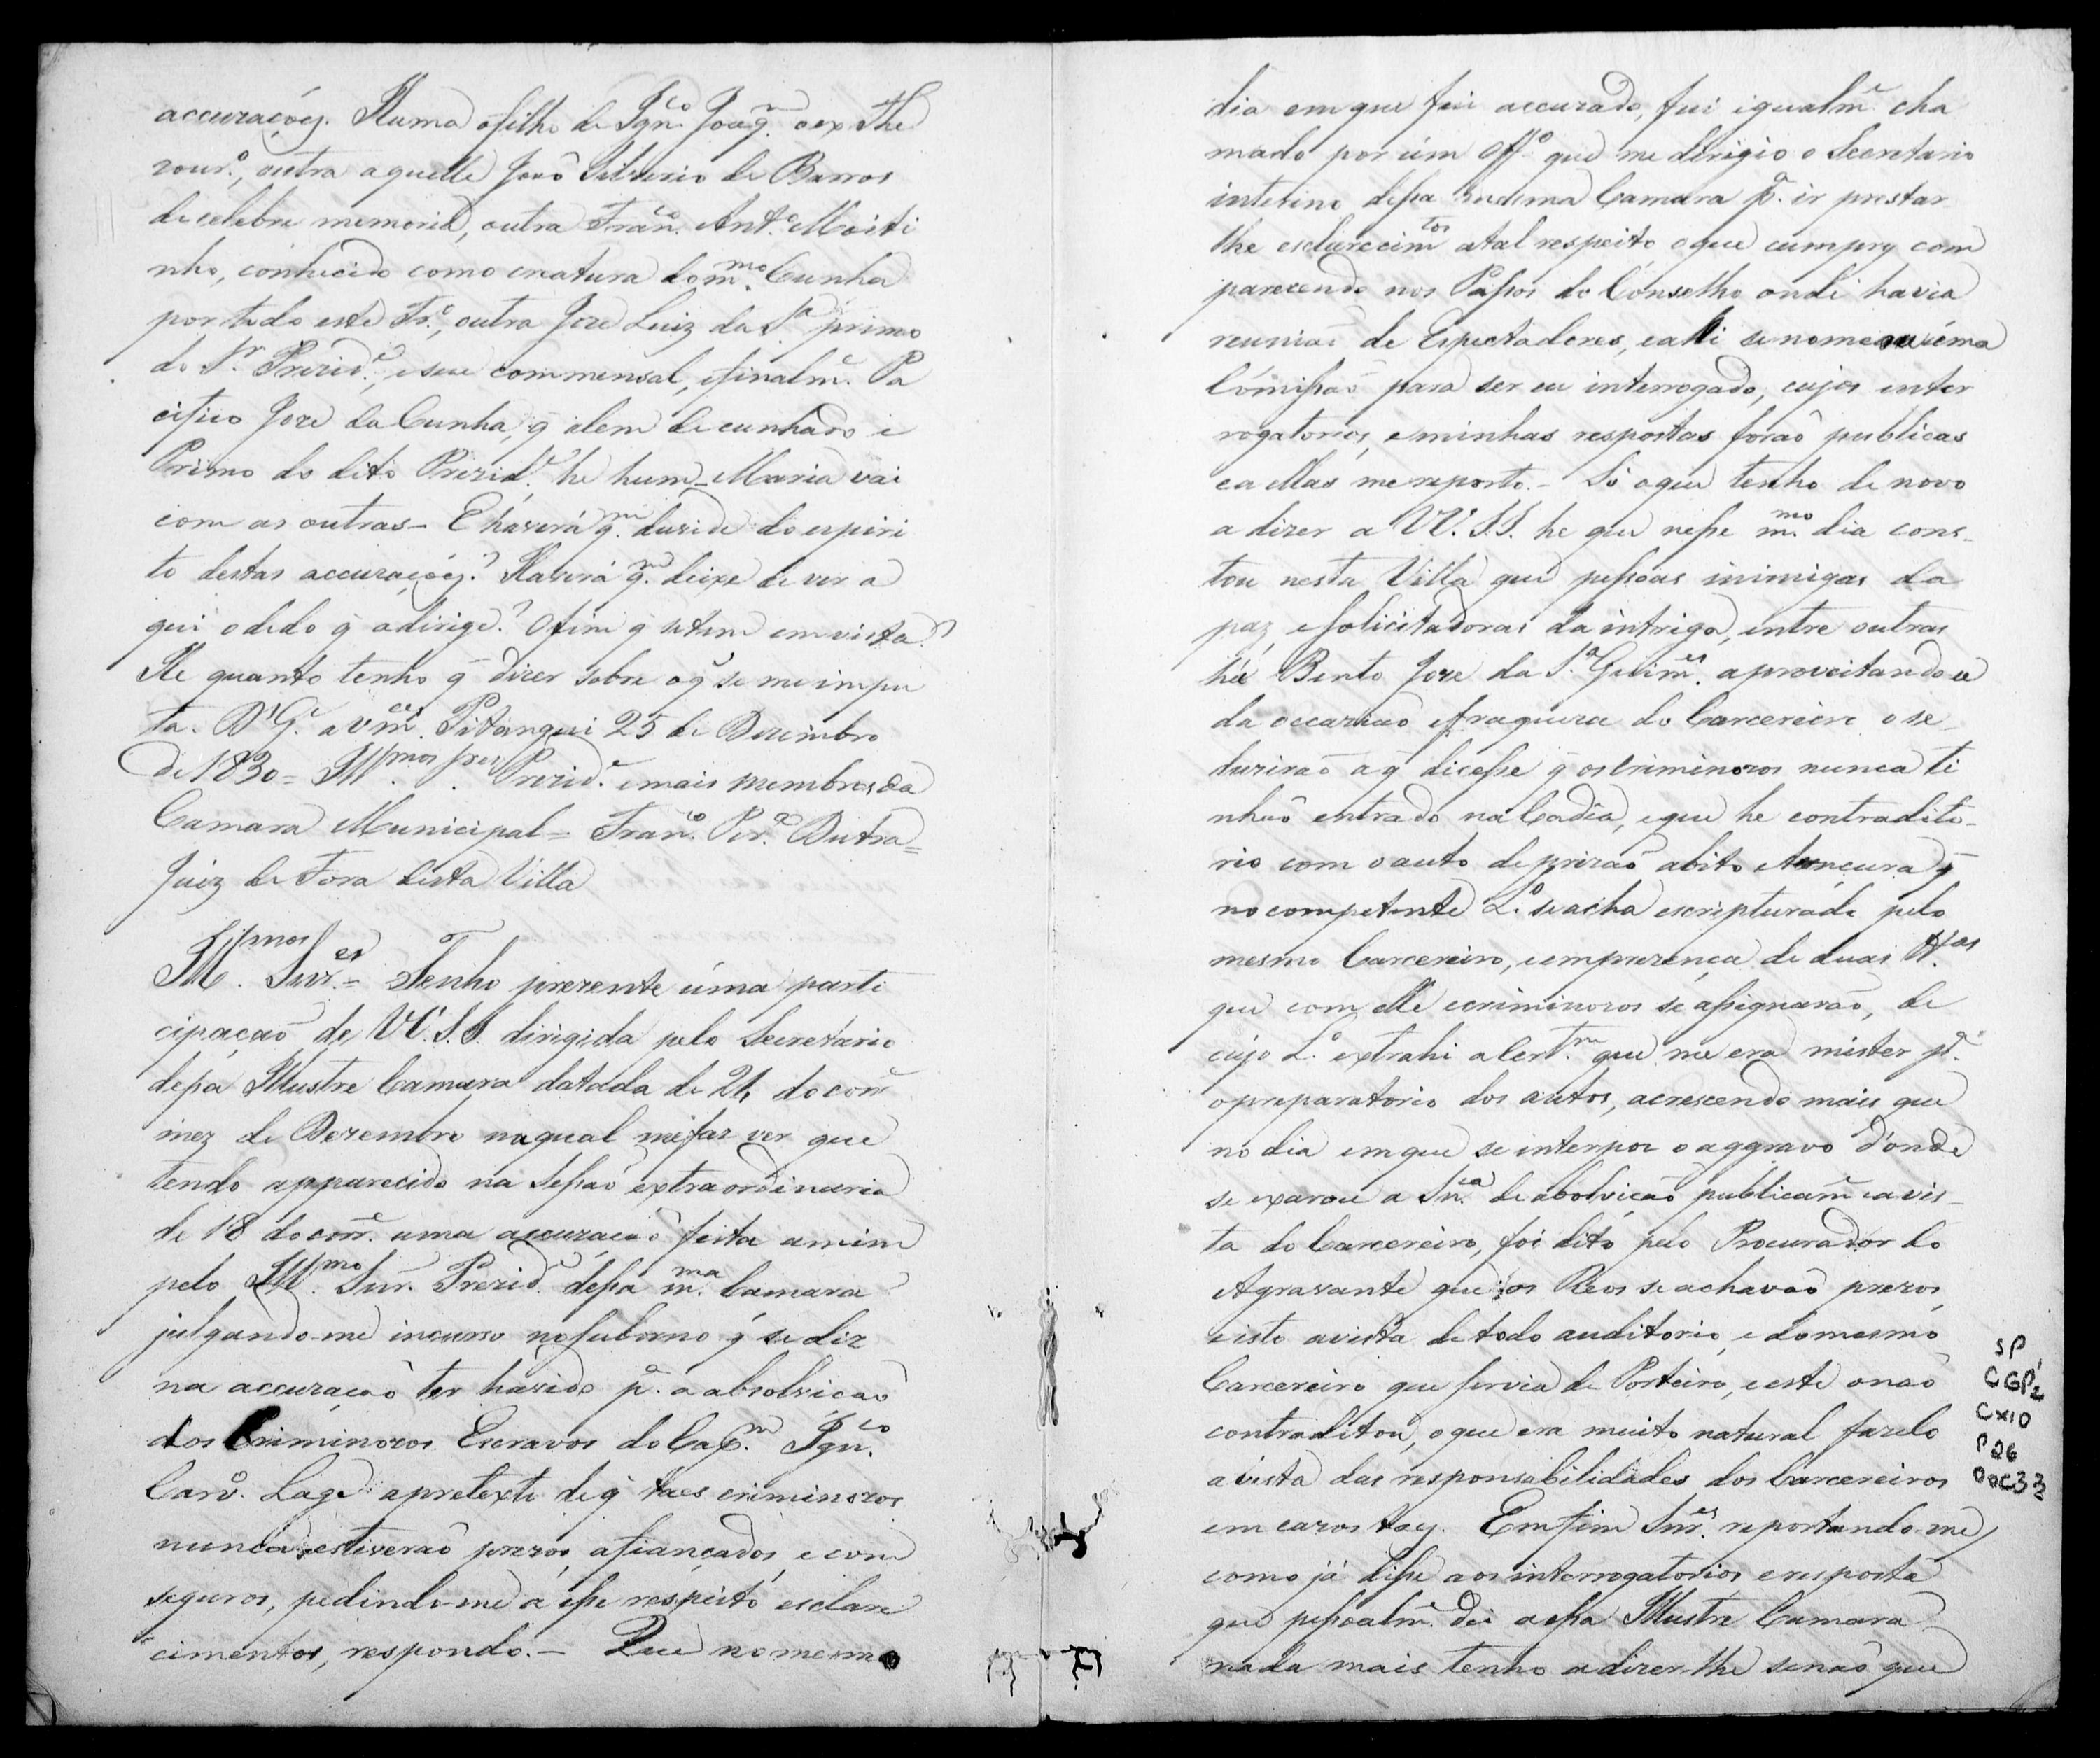 accuzaçóẽs. Huma ó filho de Ignco Joaqm o ex The
zouro., outra aquelle Joaõ Silverio de Barros
de celebre memoria, outra Franco Anto. Moiti
nho, conhecido como creatura do mmo. Cunha
por todo este Tro., outra Jozé Luiz da Sa primo
do Sr Prezide., e seu commensal, e finalme. Pa
cifico Joze da Cunha, q̃ alem de cunhado e
Primo do dito Prezide. he hum - Maria vai
com as outras - E haverá qm. duvide do espiri
to destas accuzaçoẽs? Haverá qm. deixe de ver a
qui o dedo q̃ a dirige? O fim q̃ se tem em vista?
He quanto tenho q̃ dizer sobre o q̃ se me impu
ta. Ds Ge. a Vmces. Pitangui 25 de Dezembro
de 1830 = Illmos. Snres. Prezide. e mais membros da
Camara Municipal = Franco. Pera. Dutra =
Juiz de Fora desta Villa
Illmos. Snres. = Tenho prezente uma parti
cipaçaõ de VV.S.S. dirigida pelo Secretario
dessa Illustre Camara datada de 21 do corre
mez de Dezembro na qual me faz ver que
tendo apparecido na Sessaõ extraordinaria
de 18 do corre. uma accuzaçaõ feita a mim
pelo Illmo. Snr. Prezide. dessa mma. Camara
julgando-me incurso no suborno q̃ se diz
na accuzaçaõ ter havido pa. a absolviçaõ
dos Criminozos Escravos do Capm. Ignco.
Carvo. Lage a pretexto de q̃ taes criminozos
nunca estiveraõ prezos, afiançados, e com
seguros, pedindo-me a esse respeito esclare
cimentos, respondo. - Que no mesmo
dia em que fui accuzado, fui igualme. cha
mado por úm Offo. que me dirigio o Secretario
interino dessa mesma Camara pa. ir prestar
lhe esclarecimtos a tal respeito, o que cumpry com
parecendo nos Passos do Conselho onde havia
reuniaõ de Espectadores, e alli se nomeou uma
Comissaõ para ser eu interrogado, cujos enter
rogatorios, e minhas respostas foraõ publicas
e a ellas me reporto. - Só o que tenho de novo
a dizer a VV.SS. he que nesse mmo. dia cons-
tou nesta Villa que pessoas inimigas da
paz, e solicitadoras da intriga, entre outras
hé Bento Joze da Sa. Guimes. aproveitando-se
da occaziaõ e fraqueza do Carcereiro o se-
duziraõ a q̃ dicesse q̃ os criminozos nunca ti
nhaõ entrado na Cadia, o que he contradito-
rio com o auto de prizaõ abito e tonçura q̃
no competente Lo. se acha escripturado pelo
mesmo Carcereiro, e em prezença de duas Ttas
que com elle e criminozos se assignaraõ, de
cujo Lo. extrahi a Certm. que me era mister pa.
o preparatorio dos autos, acrescendo mais que
no dia em que se interpoz o aggravo d'onde
se exarou a Snca. de absolviçaõ publicame. e a vis-
ta do Carcereiro, foi dito pelo Procurador do
Agravante que os Reos se achavaõ prezos,
e isto a vista de todo auditorio, e do mesmo
Carcereiro que servia de Porteiro, e este o naõ
contraditou, o que era muito natural fazelo
a vista das responsabilidades dos Carcereiros
em cazos taes. Em fim Snres. reportando-me,
como já disse aos interrogatorios, e resposta
que pessoalme. dei a essa Illustre Camara
nada mais tenho a dizer-lhe senaõ que
SP
CGP2
CX10
P26
DOC33